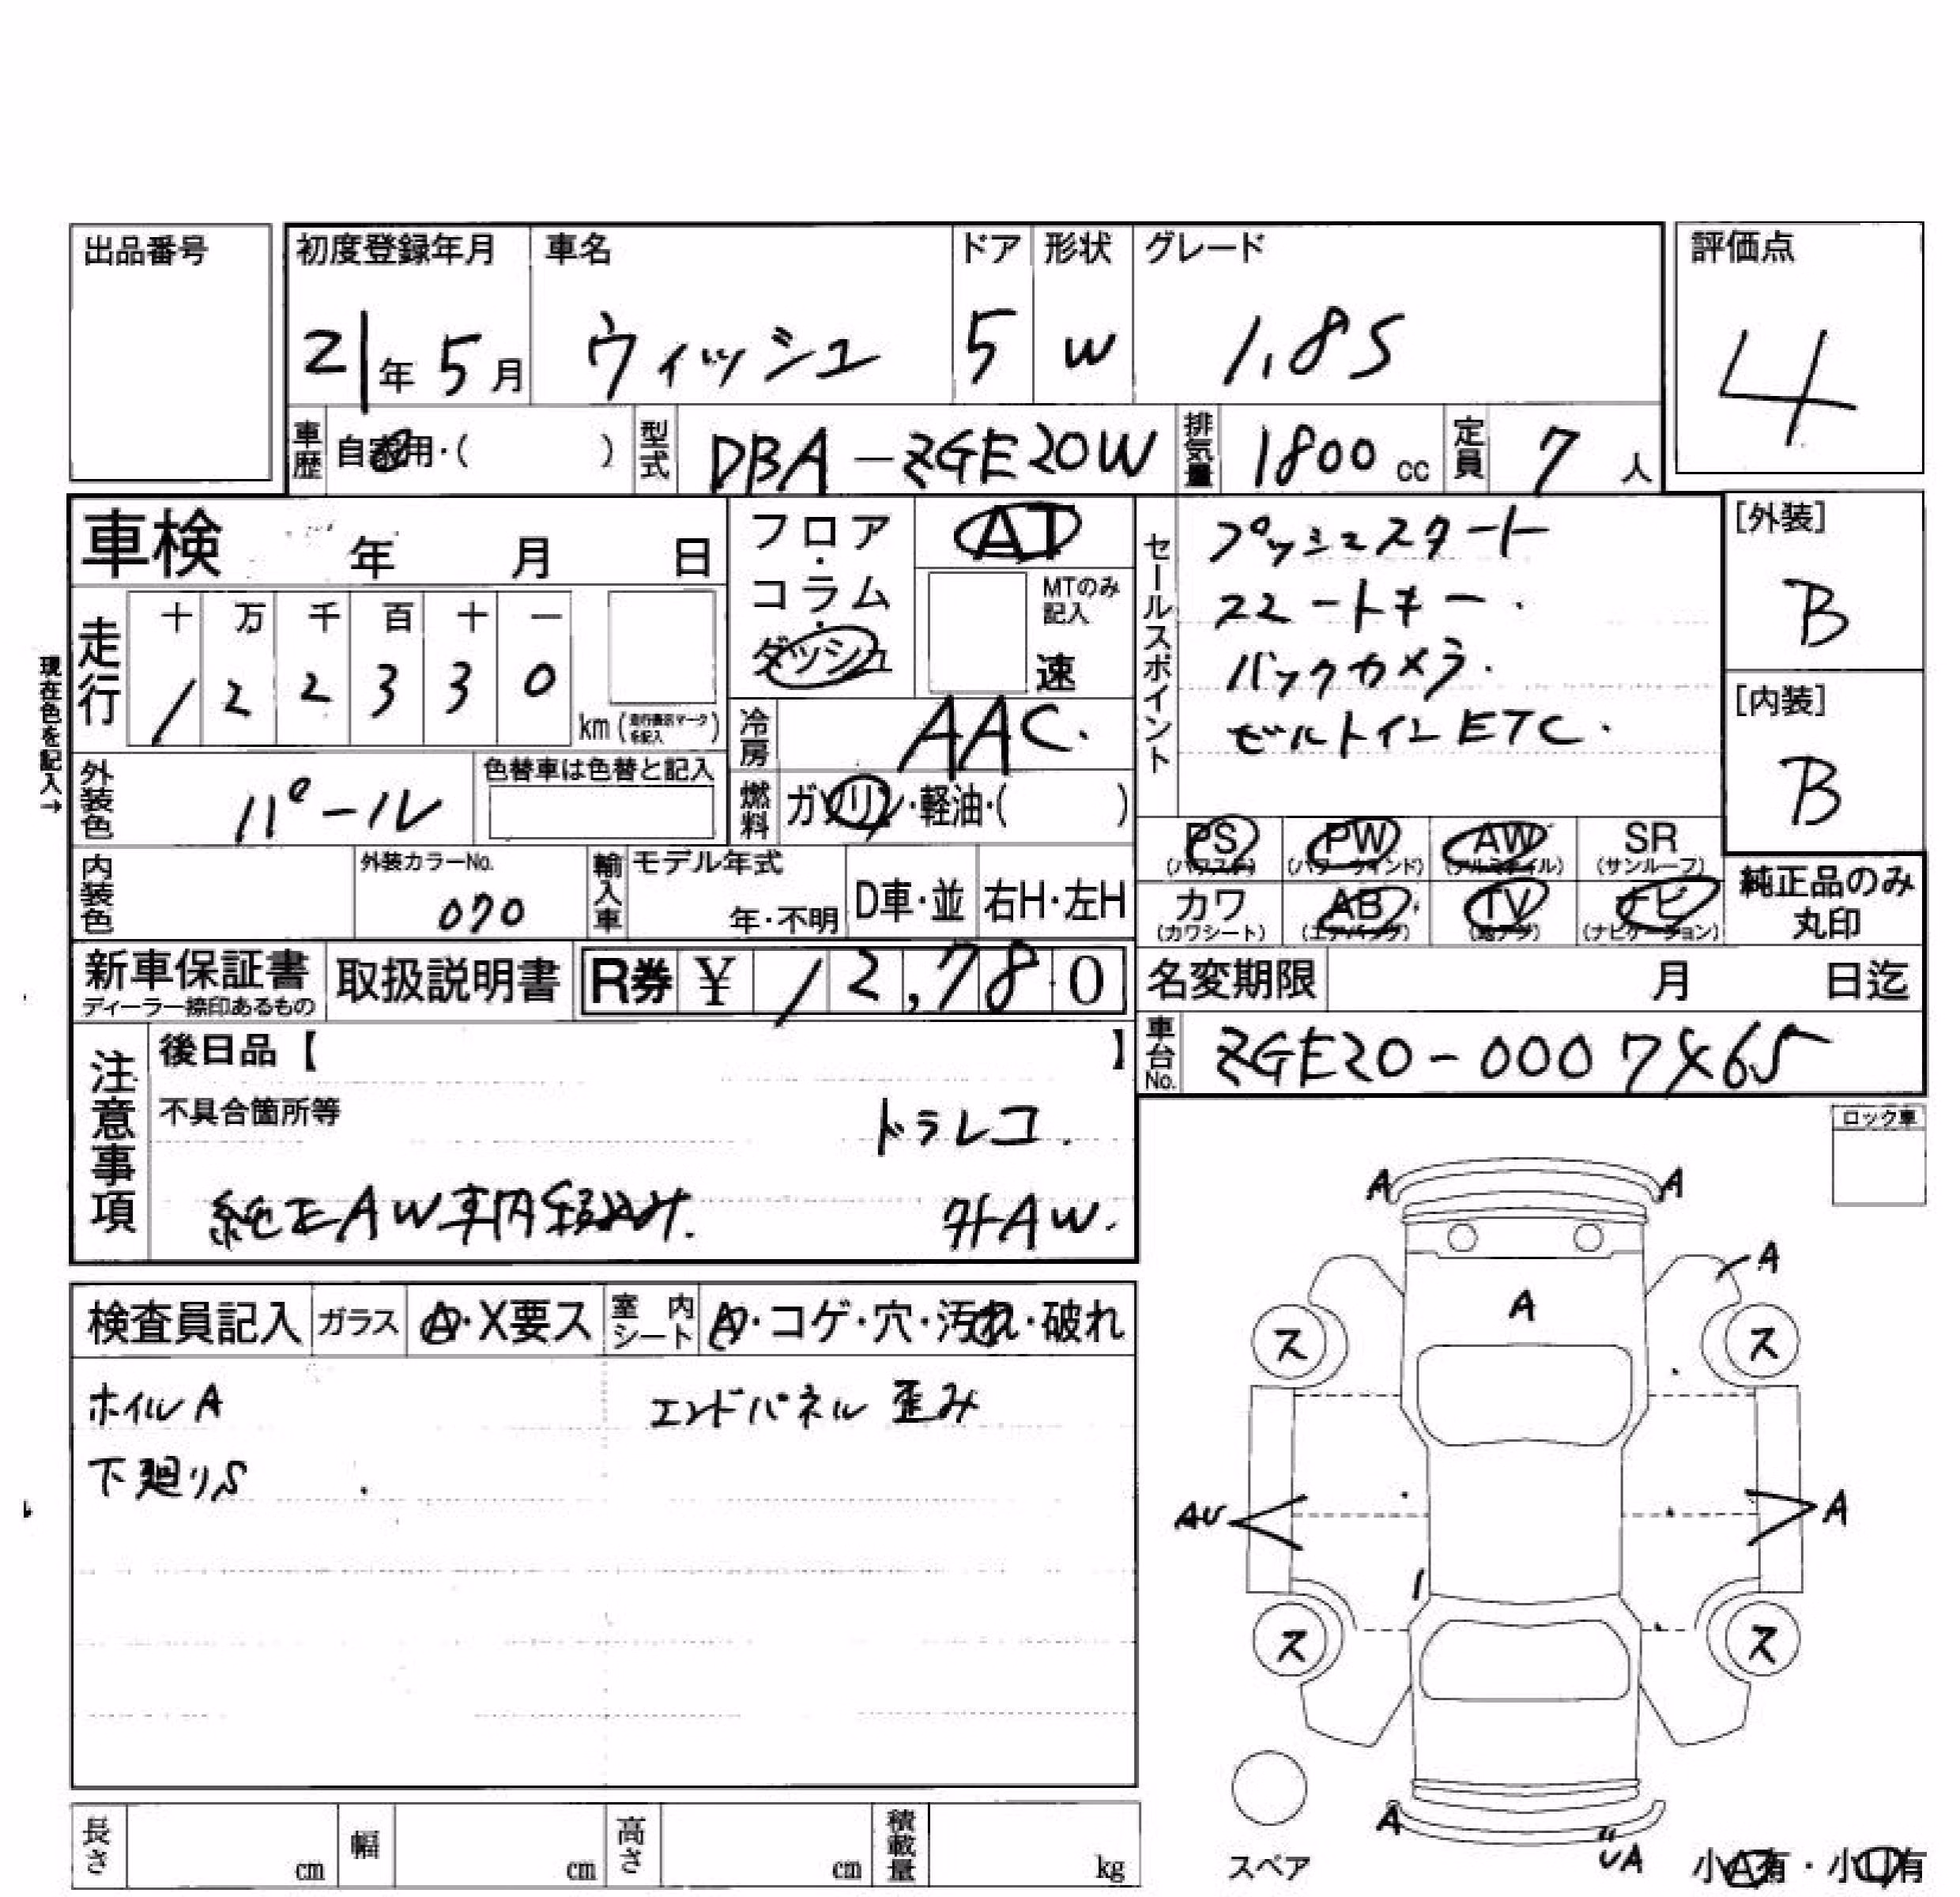 出品番号
初度登録年月 車名 ドア 形状 グレード 評価点
21年 5月 ウィッシュ 5 W 1.8S 4
車歴 自家用・( ) 型式 DBA-ZGE20W 排気量 1800cc 定員 7人
車検 年 月 日
フロア・コラム・ダッシュ
AT
MTのみ記入
速
走行 十 万 千 百 十 一
1 2 2 3 3 0 km (走行表示マークを記入)
現在色を記入→
冷房 AAC.
外装色 パール 色替車は色替と記入
燃料 ガソリン・軽油・( )
内装色 外装カラーNo. 070
輸入車 モデル年式 年・不明 D車・並 右H・左H
セールスポイント
プッシュスタート
スマートキー.
バックカメラ.
ビルトインETC.
[外装]
B
[内装]
B
PS PW AW SR
(パワステ) (パワーウインド) (アルミホイル) (サンルーフ)
カワ AB TV ナビ
(カワシート) (エアバッグ) (地デジ) (ナビゲーション)
純正品のみ
丸印
新車保証書 ディーラー捺印あるもの 取扱説明書 R券 ¥ 12,780
名変期限 月 日迄
車台No. ZGE20-0007465
注意事項
後日品【 】
不具合箇所等
ドラレコ.
純正AW車内積込み. 外AW.
ロック車
検査員記入 ガラス A・X要ス 室内シート A・コゲ・穴・汚れ・破れ
ホイルA エンドパネル 歪み
下廻りS
A A
A
A
ス ス
AU A
ス ス
A
UA
スペア 小A有・小U有
長さ cm 幅 cm 高さ cm 積載量 kg